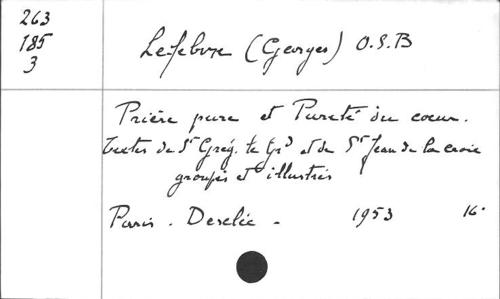 263
185
3
Lefebvre (Georges) O.S.B
Prière pure et Pureté du coeur.
Textes de St Grég. le Grd et de St Jean de la croix
groupés et illustrés
Paris. Desclée - 1953 16°